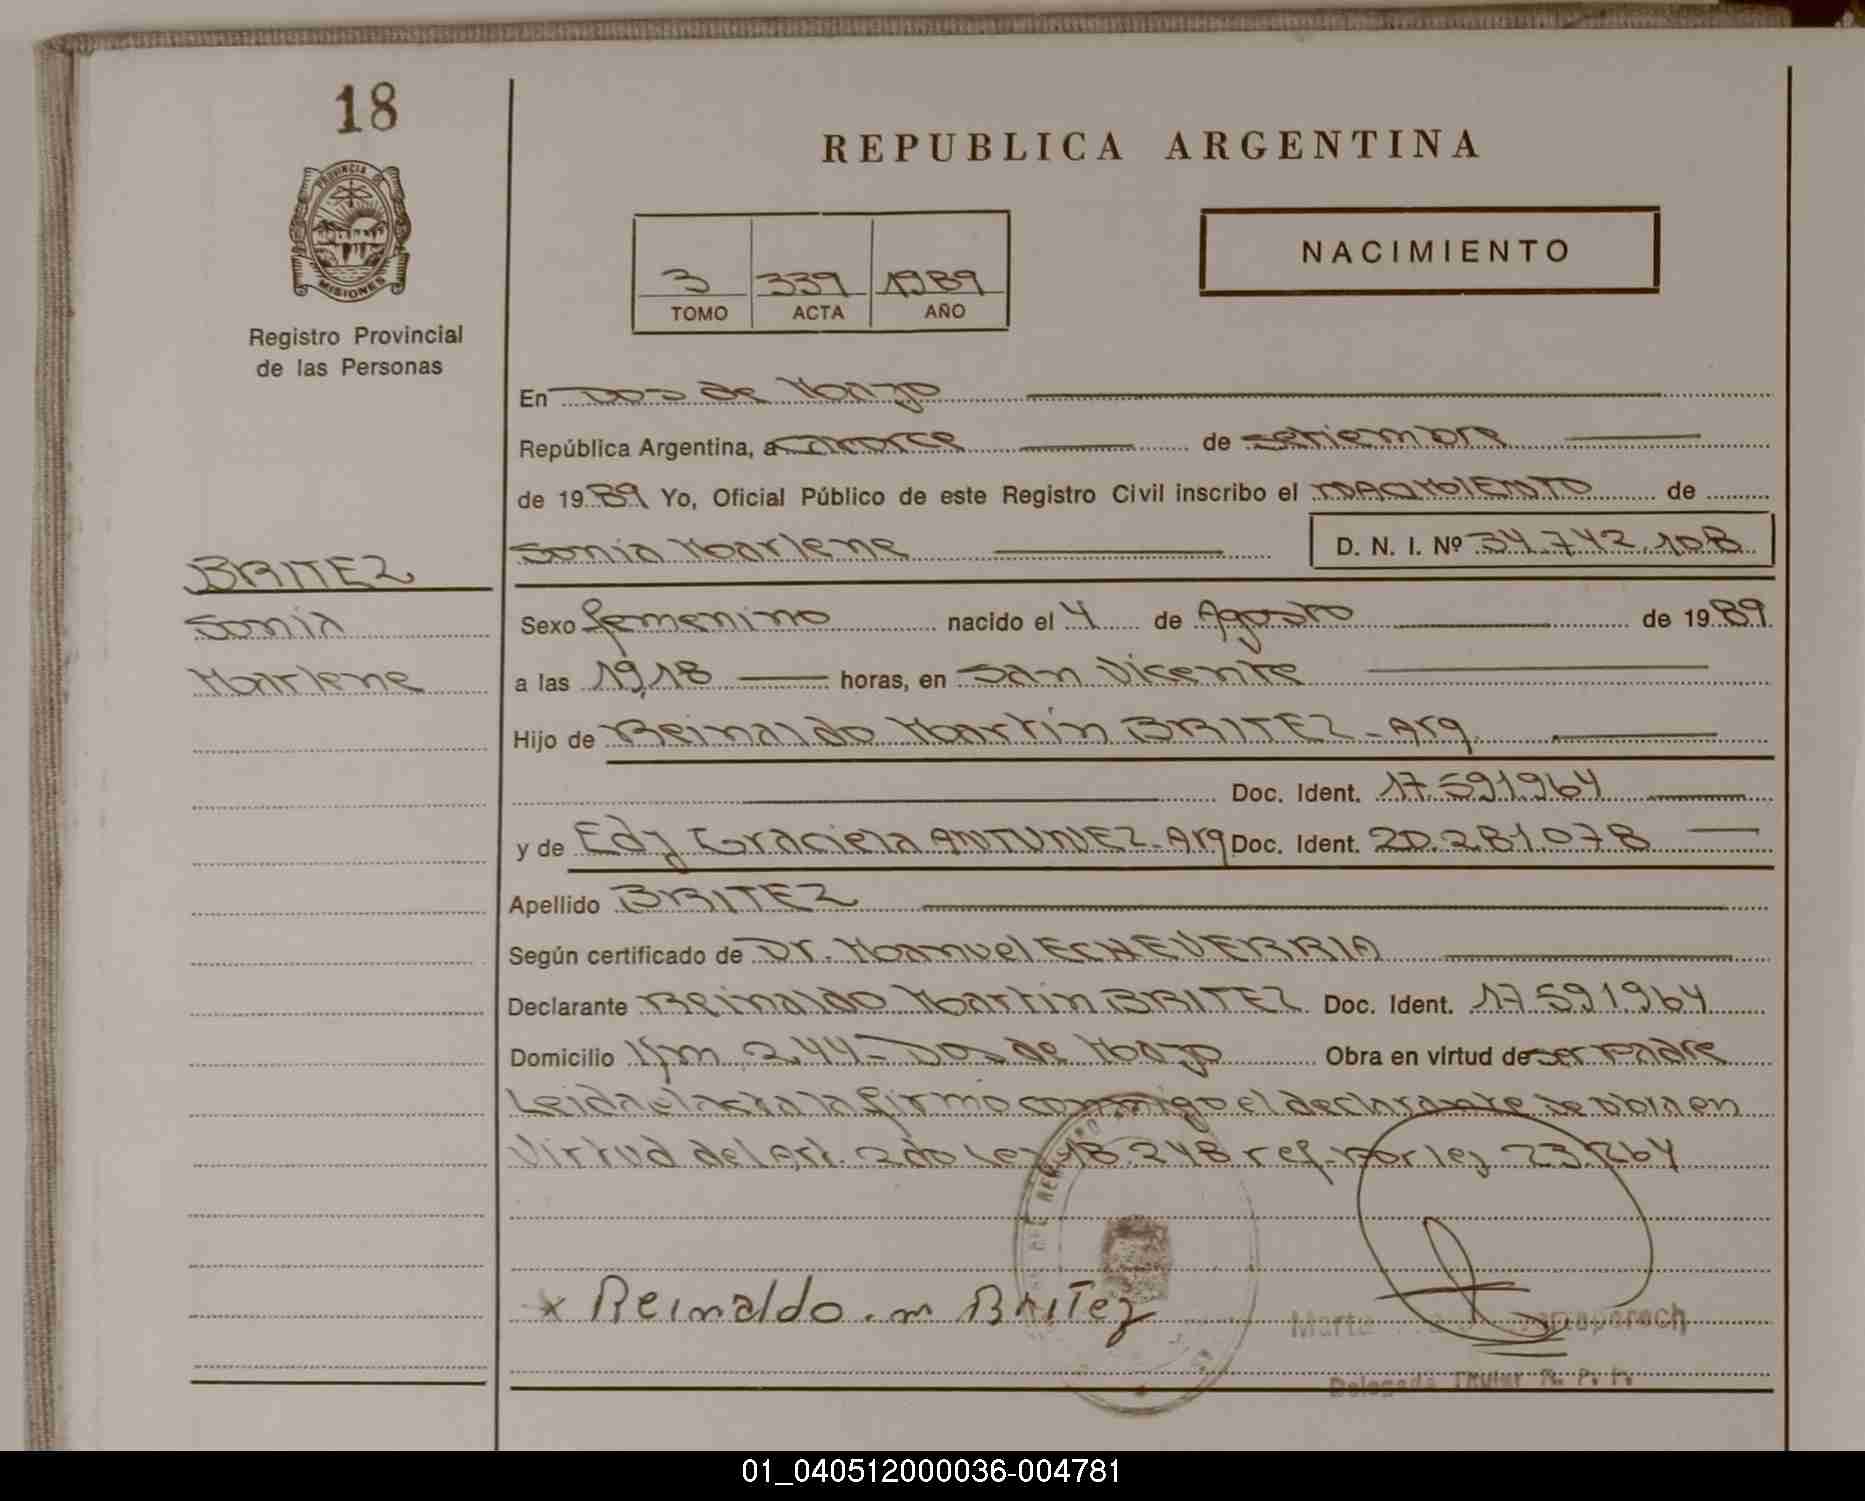 18
PROVINCIA DE
MISIONES
Registro Provincial
de las Personas
REPUBLICA ARGENTINA
3 339 1989
TOMO ACTA AÑO
NACIMIENTO
En Dos de Mayo
República Argentina, a catorce de setiembre
de 1989 Yo, Oficial Público de este Registro Civil inscribo el NACIMIENTO de
Sonia Marlene D. N. I. Nº 34.742.108
BRITEZ
Sonia
Marlene
Sexo femenino nacido el 4 de Agosto de 1989
a las 19,18 horas, en San Vicente
Hijo de Reinaldo Martín BRITEZ - Arg.
Doc. Ident. 17.591.964
y de Edy Graciela ANTUNEZ - Arg Doc. Ident. 20.281.078
Apellido BRITEZ
Según certificado de Dr. Manuel ECHEVERRIA
Declarante Reinaldo Martin BRITEZ Doc. Ident. 17.591.964
Domicilio Km 244 - Dos de Mayo Obra en virtud de ser Padre
Leida el acta la firmo conmigo el declarante en
Virtud del Art. 2do Ley 18.248 ref. por ley 23.264
x Reinaldo . m BriTez
Marta
Delegada Titular R. P. P.
01_040512000036-004781